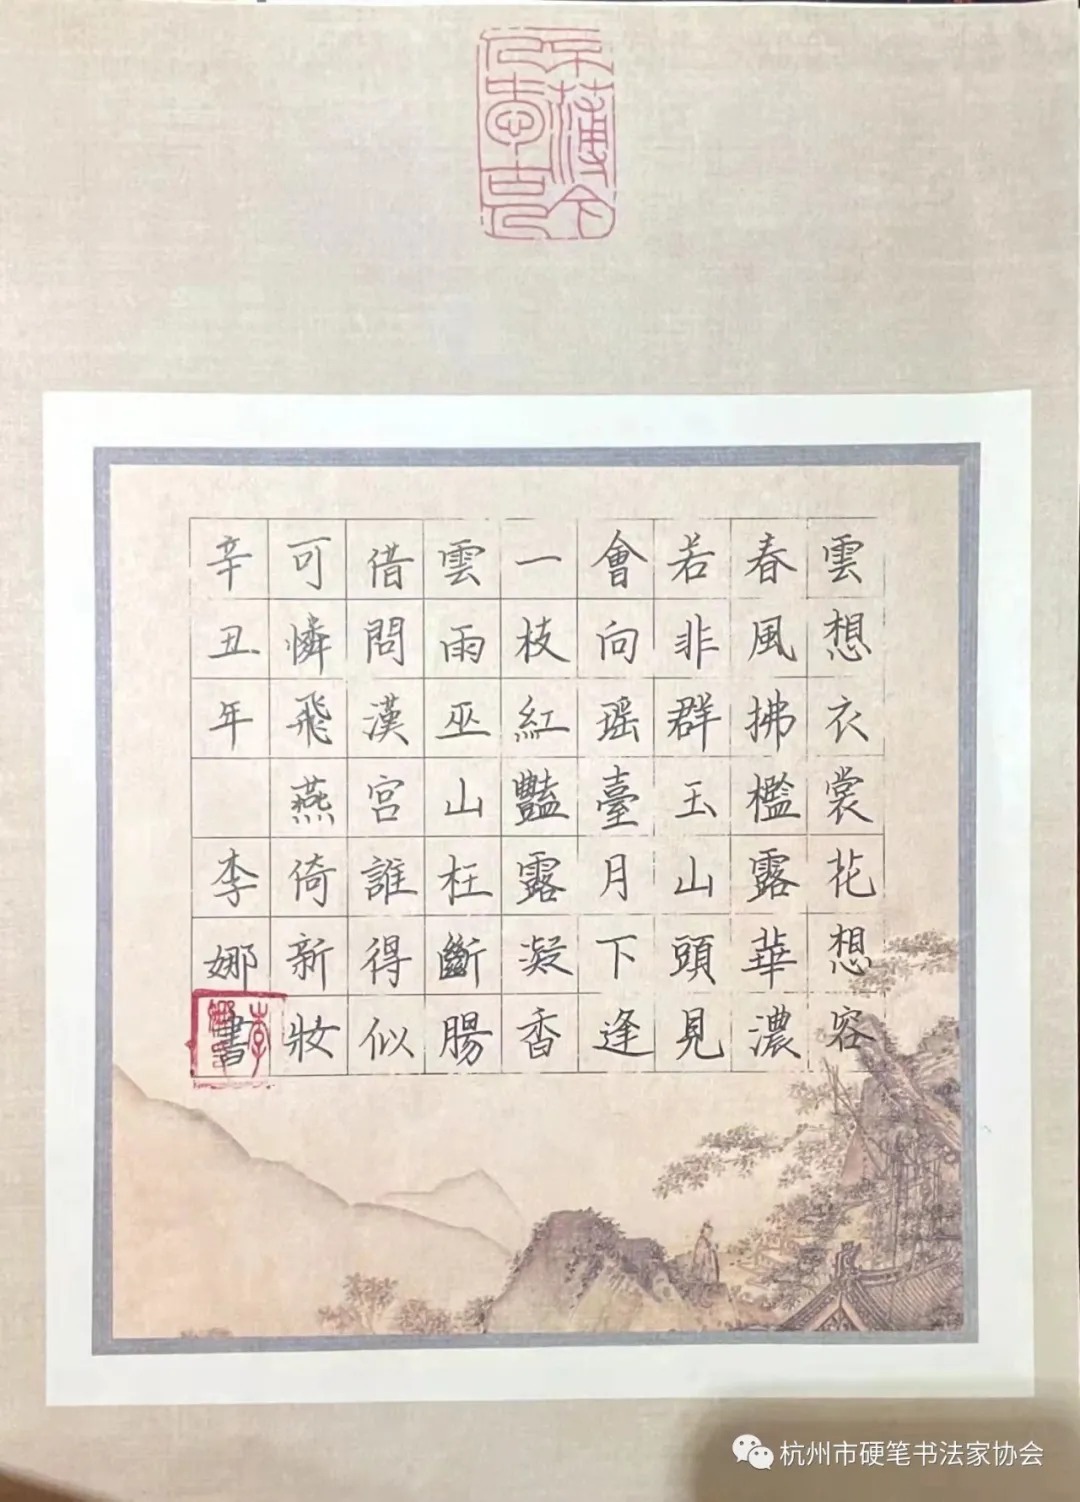 雲想衣裳花想容
春風拂檻露華濃
若非群玉山頭見
會向瑶臺月下逢
一枝紅豔露凝香
雲雨巫山枉斷腸
借問漢宮誰得似
可憐飛燕倚新妝
辛丑年 李娜書
杭州市硬笔书法家协会